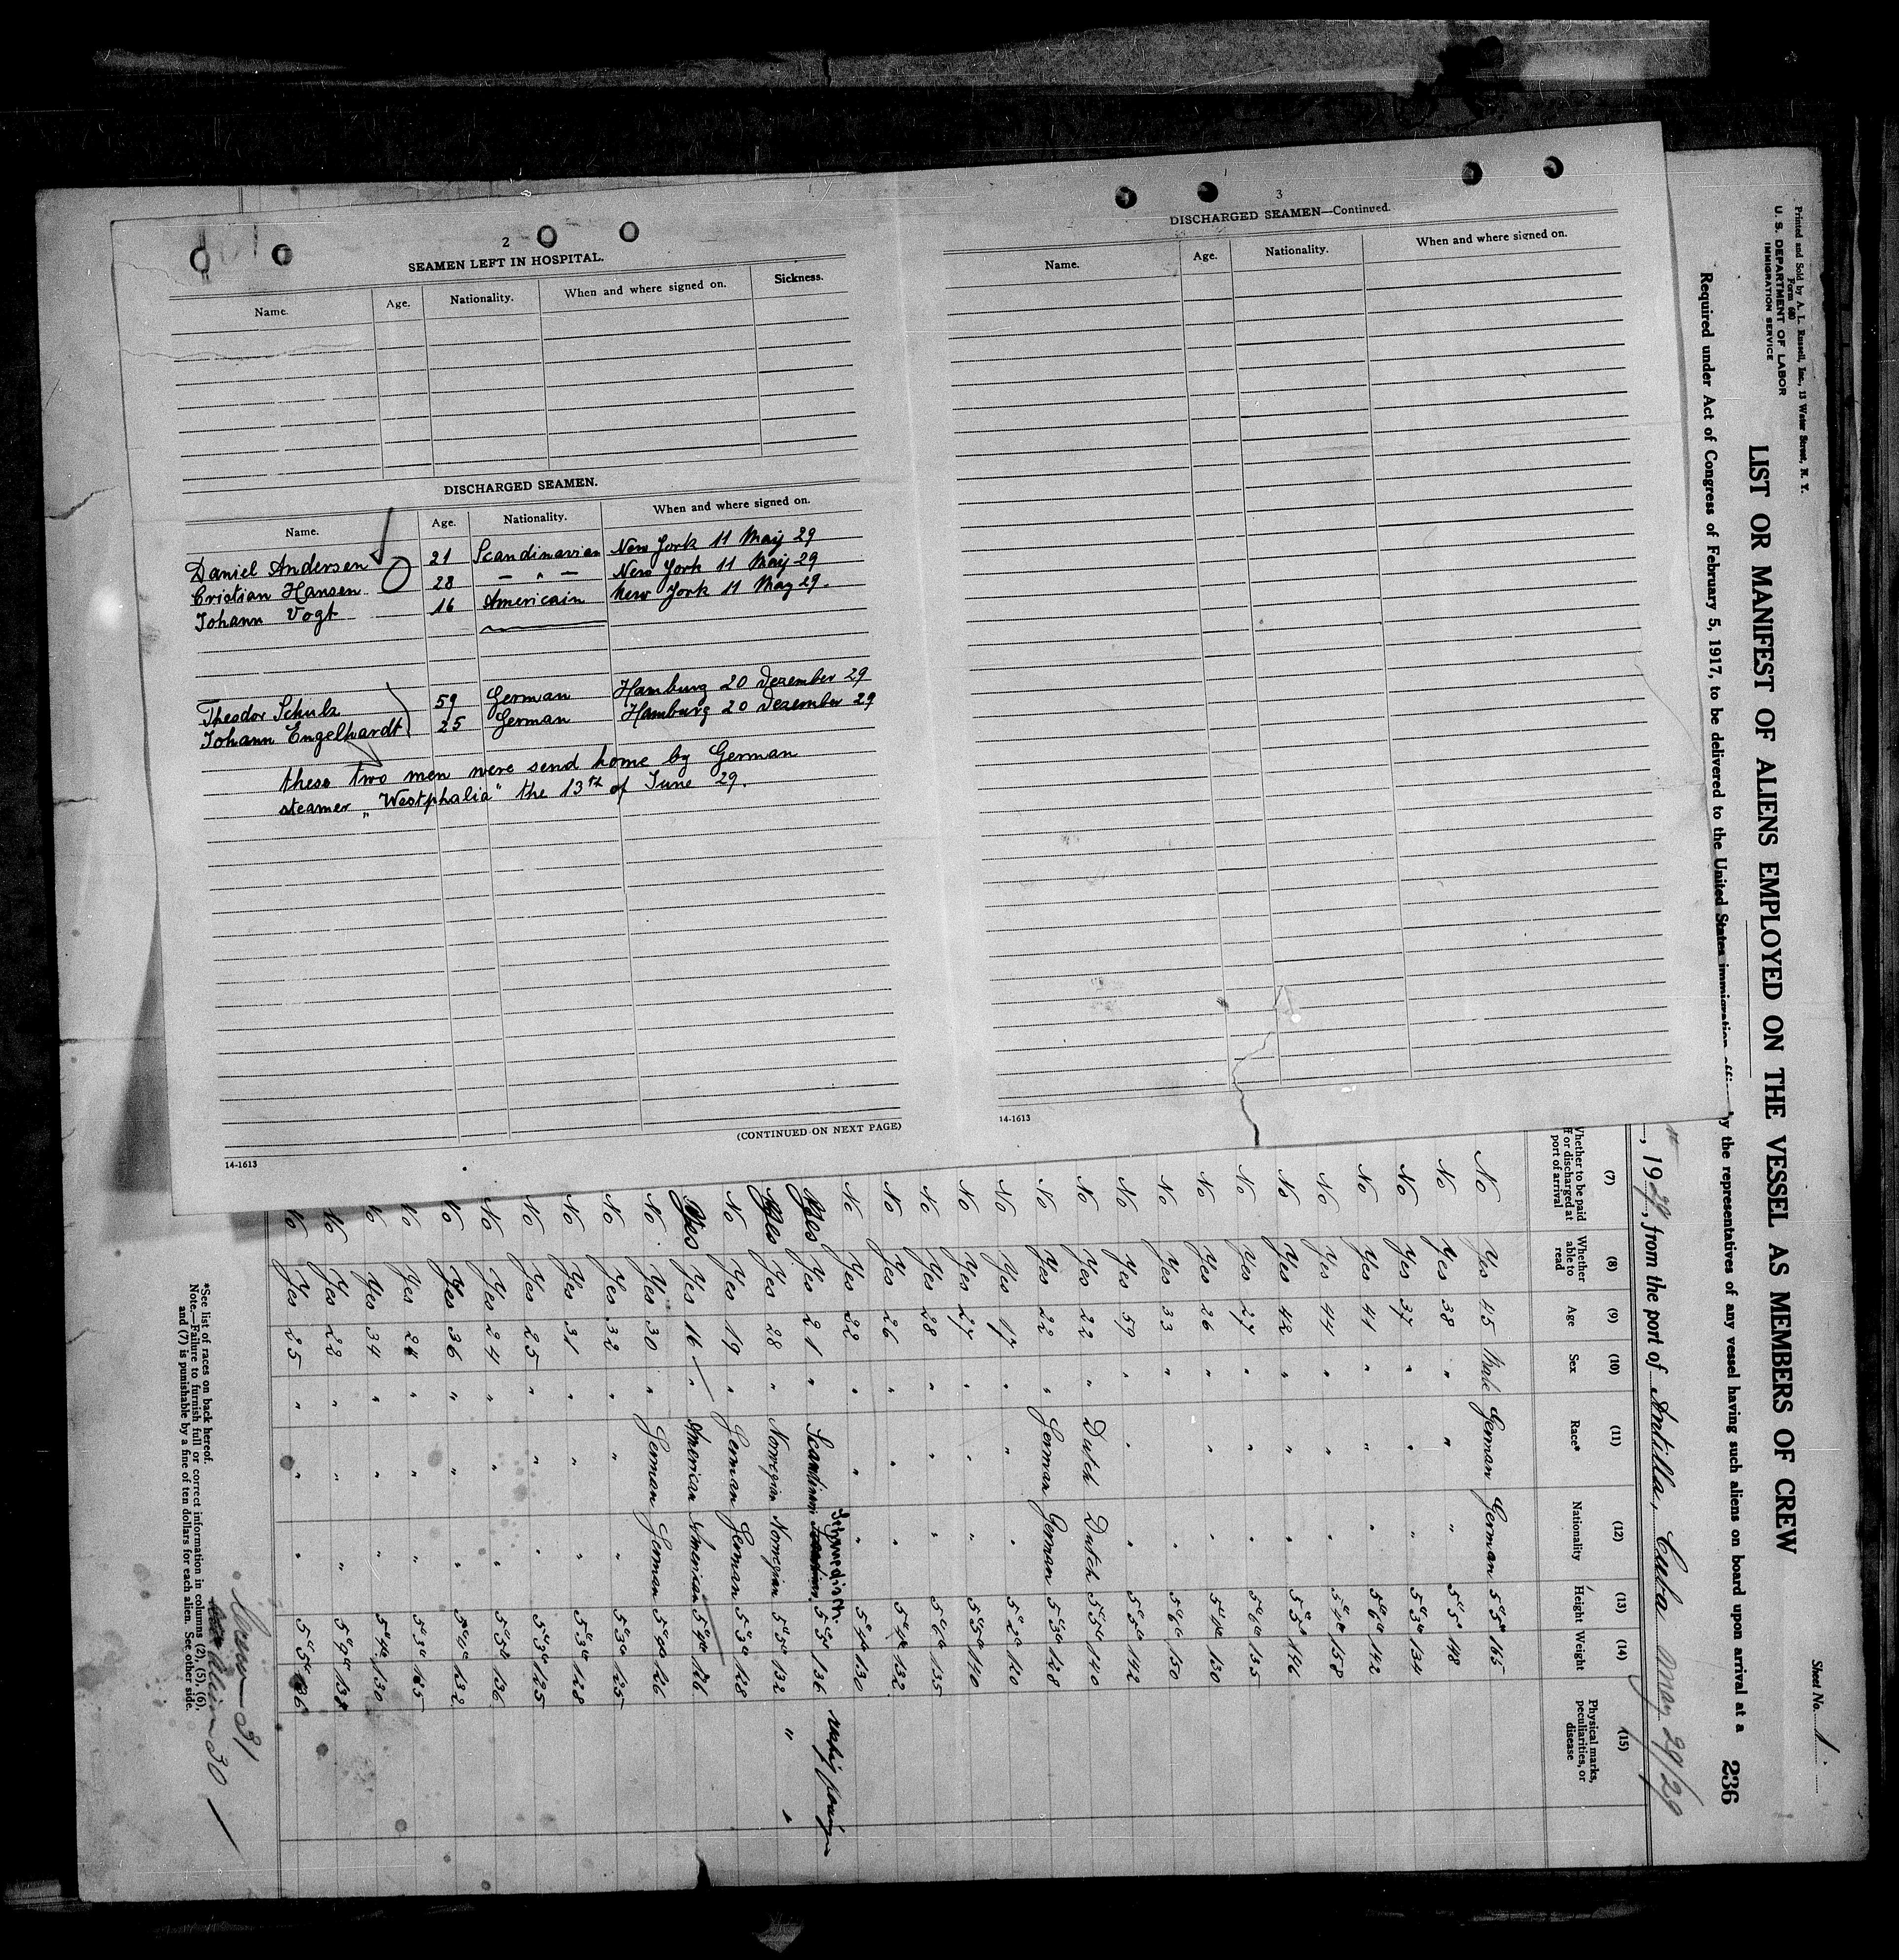 2
SEAMEN LEFT IN HOSPITAL.
Name. Age. Nationality. When and where signed on. Sickness.
DISCHARGED SEAMEN.
Name. Age. Nationality. When and where signed on.
Daniel Andersen 21 Scandinavian New York 11 May 29
Cristian Hansen 28 — " — New York 11 May 29
Johann Vogt 16 Americain New York 11 May 29.
Theodor Schulz 59 German Hamburg 20 Dezember 29
Johann Engelhardt 25 German Hamburg 20 Dezember 29
these two men were send home by German
steamer „Westphalia" the 13th of June 29.
(CONTINUED ON NEXT PAGE)
14-1613
3
DISCHARGED SEAMEN—Continued.
Name. Age. Nationality. When and where signed on.
14-1613
Printed and Sold by A. L. Russell, Inc., 13 Water Street, N. Y.
Form 680
U. S. DEPARTMENT OF LABOR
IMMIGRATION SERVICE
Sheet No. 1
LIST OR MANIFEST OF ALIENS EMPLOYED ON THE VESSEL AS MEMBERS OF CREW
236
Required under Act of Congress of February 5, 1917, to be delivered to the United States immigration by the representatives of any vessel having such aliens on board upon arrival at a
, 1929, from the port of Antilla, Cuba May 29/29
(7) (8) (9) (10) (11) (12) (13) (14) (15)
Whether to be paid off or discharged at port of arrival Whether able to read Age Sex Race* Nationality Height Weight Physical marks, peculiarities, or disease
No Yes 45 Male German German 5' 5" 165
No Yes 38 " " " 5' 5" 148
No Yes 37 " " " 5' 3" 134
No Yes 41 " " " 5' 6" 142
No Yes 44 " " " 5' 4" 158
No Yes 42 " " " 5' 5" 146
No Yes 27 " " " 5' 6" 135
No Yes 26 " " " 5' 4" 130
No Yes 33 " " 5' 6" 150
No Yes 59 " " " 5' 5" 142
No Yes 22 " Dutch Dutch 5' 5" 140
No Yes 22 " German German 5' 3" 128
No Yes 17 " " " 5' 2" 120
No Yes 27 " " " 5' 5" 140
No Yes 28 " " " 5' 6" 135
No Yes 26 " " " 5' 4" 132
No Yes 22 " " " 5' 4" 130
Yes Yes 21 " 5' 5" 136
Yes Yes 28 " Norwegian Norwegian 5' 5" 132 " "
No Yes 19 " German German 5' 3" 128
Yes Yes 16 " American American 5' 4" 126
No Yes 30 " German German 5' 4" 126
No Yes 32 " " " 5' 3" 125
No Yes 31 " " " 5' 3" 128
No Yes 25 " " " 5' 3" 125
No Yes 24 " " " 5' 5" 136
No Yes 36 " " " 5' 4" 132
No Yes 24 " " " 5' 3" 125
No Yes 34 " " " 5' 4" 130
No Yes 22 " " " 5' 9" 138
No Yes 25 " " " 5' 5"
*See list of races on back hereof.
Note.—Failure to furnish full or correct information in columns (2), (5), (6),
and (7) is punishable by a fine of ten dollars for each alien. See other side.
Crew 31
30